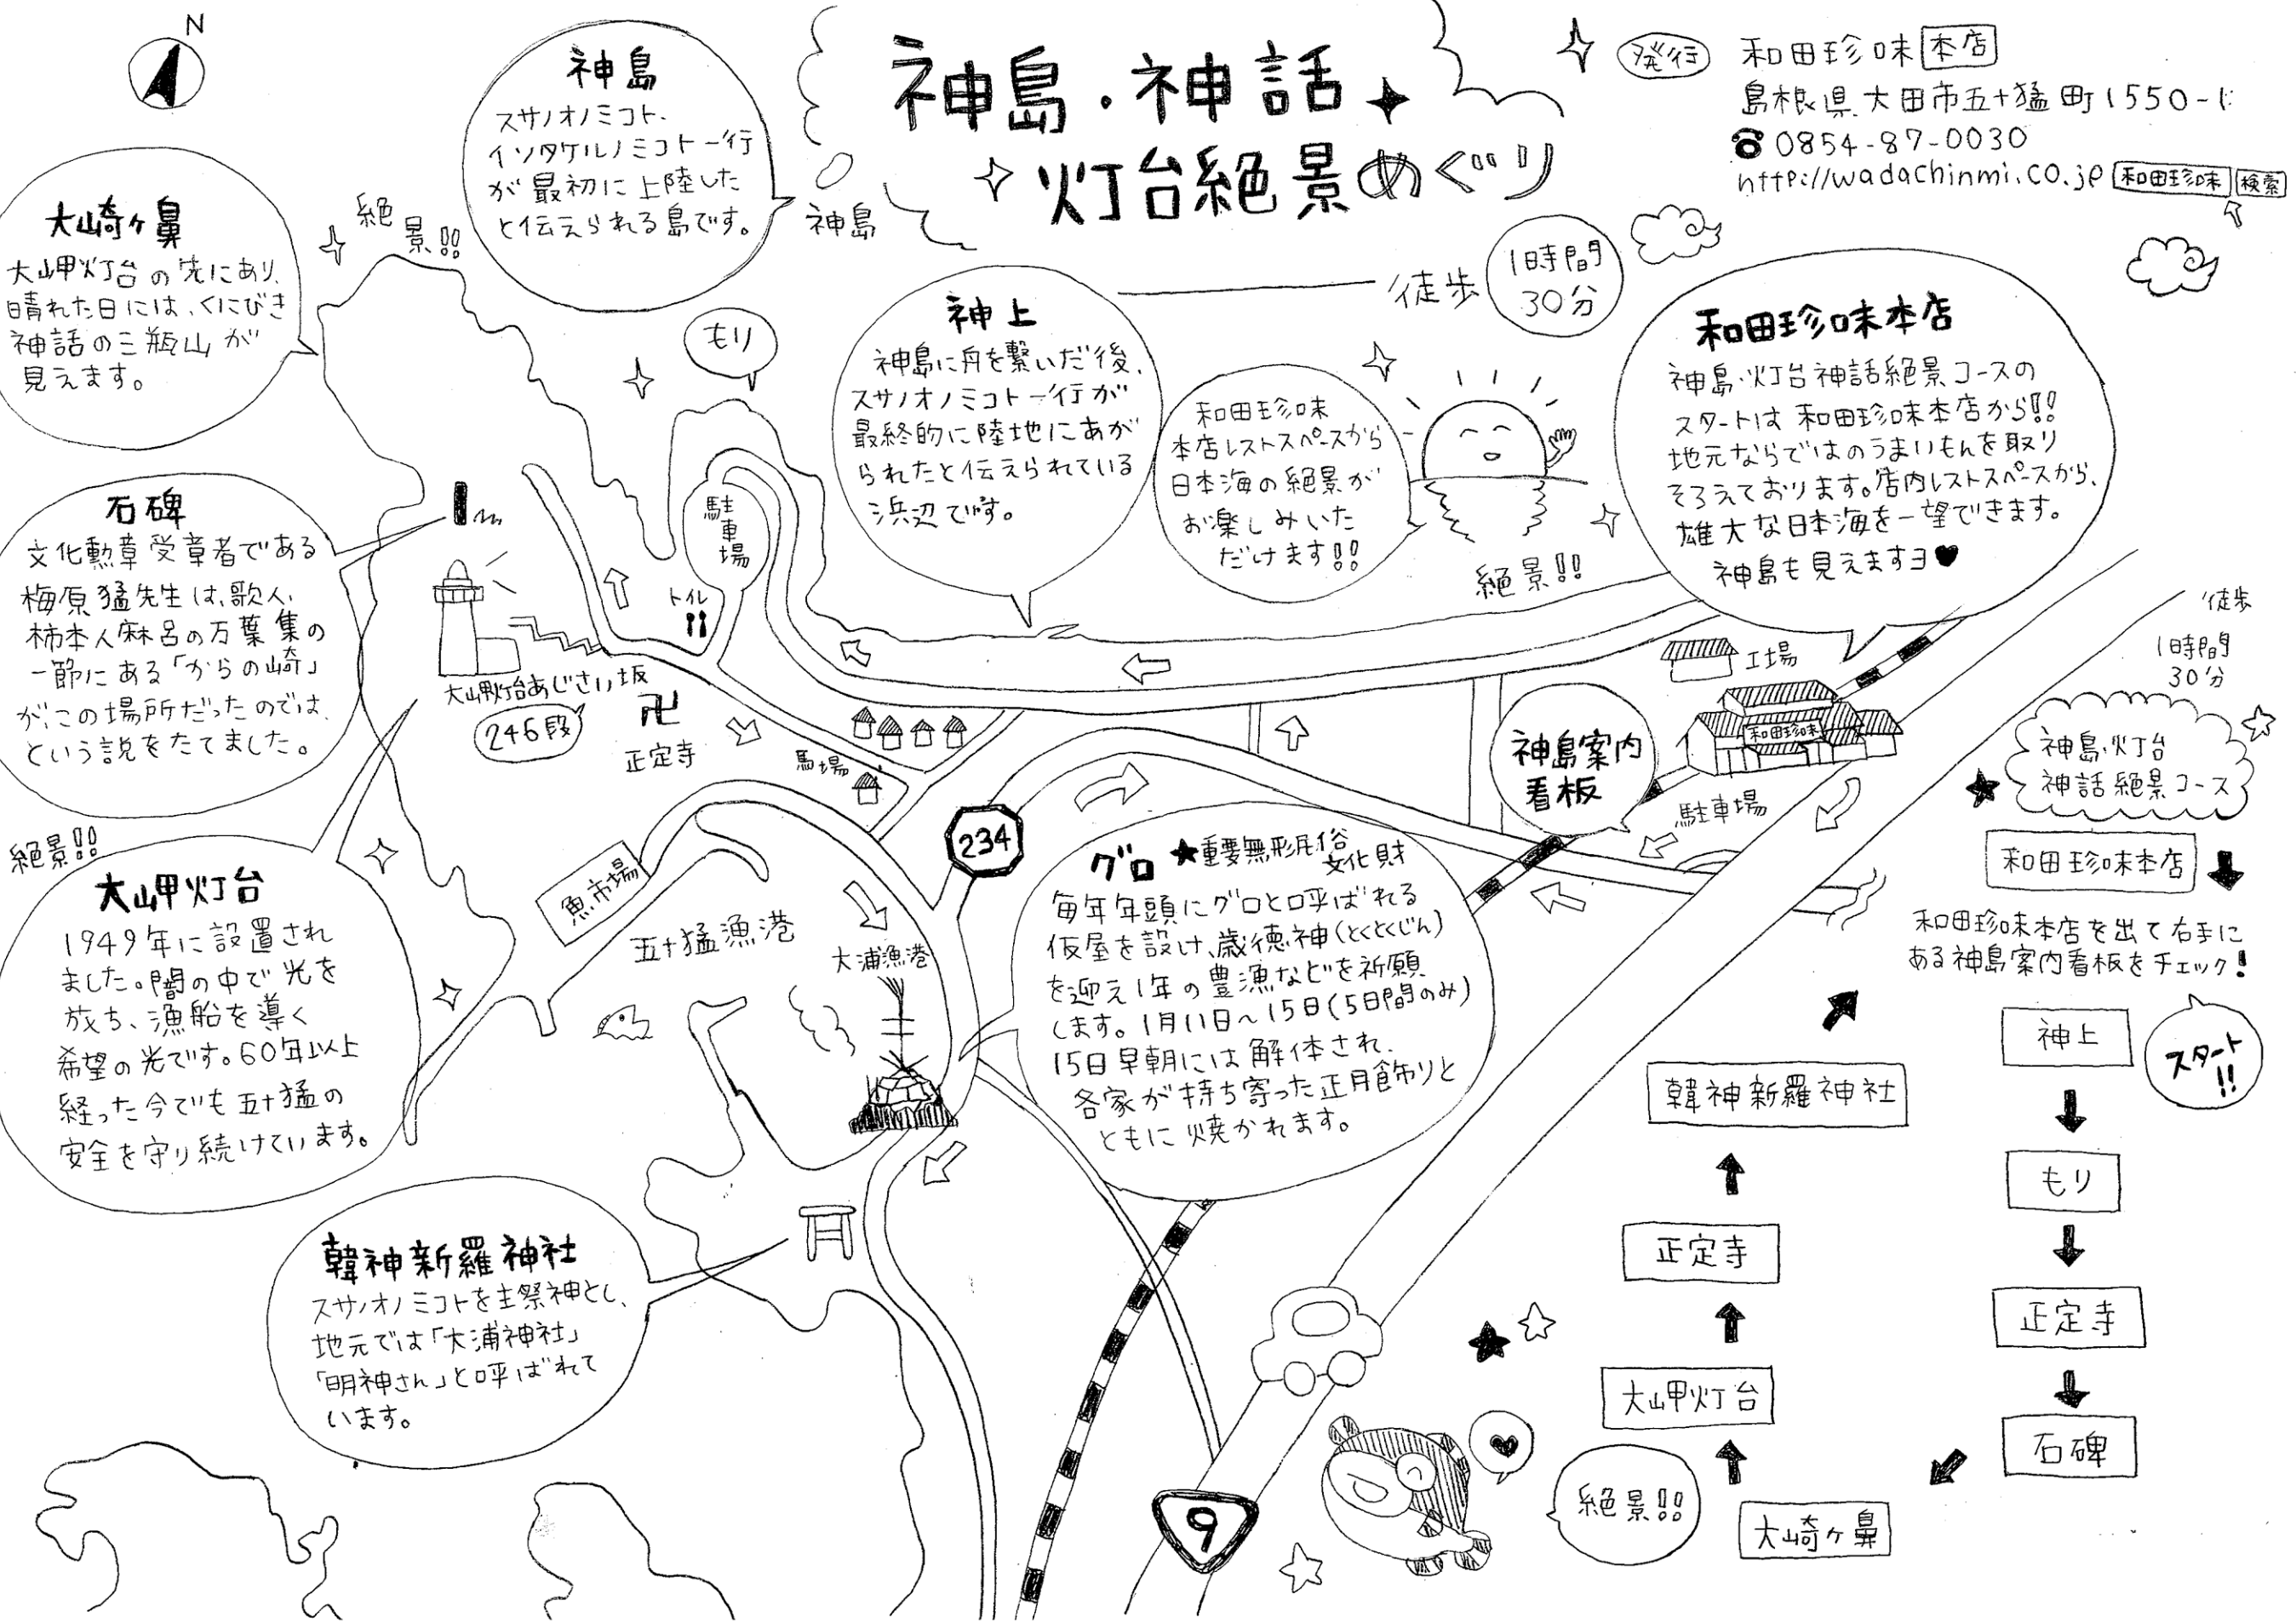 N
神島・神話
灯台絶景めぐり
発行
和田珍味 本店
島根県大田市五十猛町1550-1
☎0854-87-0030
http://wadachinmi.co.jp 和田珍味 検索
神島
スサノオノミコト、
イソタケルノミコト一行
が最初に上陸した
と伝えられる島です。
神島
大崎ヶ鼻
大山甲灯台の先にあり、
晴れた日には、くにびき
神話の三瓶山が
見えます。
絶景!!
もり
神上
神島に舟を繋いだ後、
スサノオノミコト一行が
最終的に陸地にあが
られたと伝えられている
浜辺です。
徒歩
1時間
30分
和田珍味
本店レストスペースから
日本海の絶景が
お楽しみいた
だけます!!
絶景!!
和田珍味本店
神島・灯台神話絶景コースの
スタートは和田珍味本店から!!
地元ならではのうまいもんを取り
そろえております。店内レストスペースから、
雄大な日本海を一望できます。
神島も見えますヨ♥
石碑
文化勲章受章者である
梅原猛先生は、歌人、
柿本人麻呂の万葉集の
一節にある「からの崎」
が、この場所だったのでは、
という説をたてました。
駐車場
トイレ
大山甲灯台あじさい坂
246段
卍
正定寺
馬場
工場
和田珍味
駐車場
神島案内
看板
234
魚市場
五十猛漁港
大浦漁港
絶景!!
大山甲灯台
1949年に設置され
ました。闇の中で光を
放ち、漁船を導く
希望の光です。60年以上
経った今でも五十猛の
安全を守り続けています。
グロ ★重要無形民俗
文化財
毎年年頭にグロと呼ばれる
仮屋を設け、歳徳神(とくとくじん)
を迎え1年の豊漁などを祈願
します。1月11日~15日(5日間のみ)
15日早朝には解体され、
各家が持ち寄った正月飾りと
ともに焼かれます。
韓神新羅神社
スサノオノミコトを主祭神とし、
地元では「大浦神社」
「明神さん」と呼ばれて
います。
9
徒歩
1時間
30分
神島・灯台
神話絶景コース
和田珍味本店
和田珍味本店を出て右手に
ある神島案内看板をチェック!
スタート
!!
神上
もり
正定寺
石碑
大崎ヶ鼻
絶景!!
大山甲灯台
正定寺
韓神新羅神社